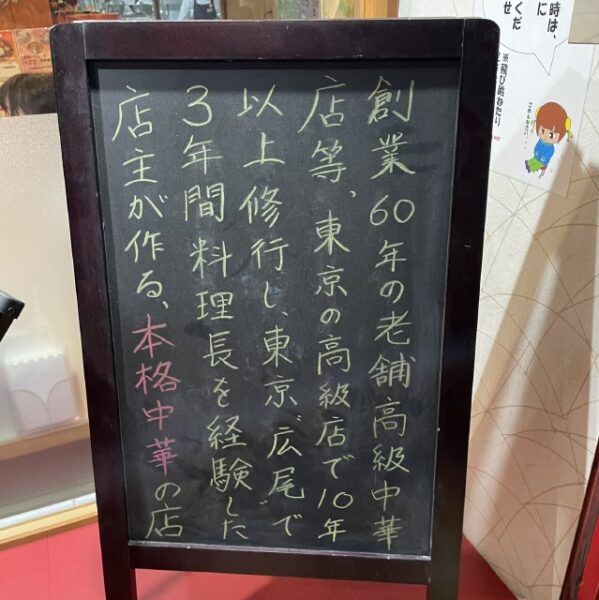 創業60年の老舗高級中華
店等、東京の高級店で10年
以上修行し、東京"広尾"で
3年間料理長を経験した
店主が作る、本格中華の店
時は、
に
くだ
せ
※飛び
ごめんなさい…